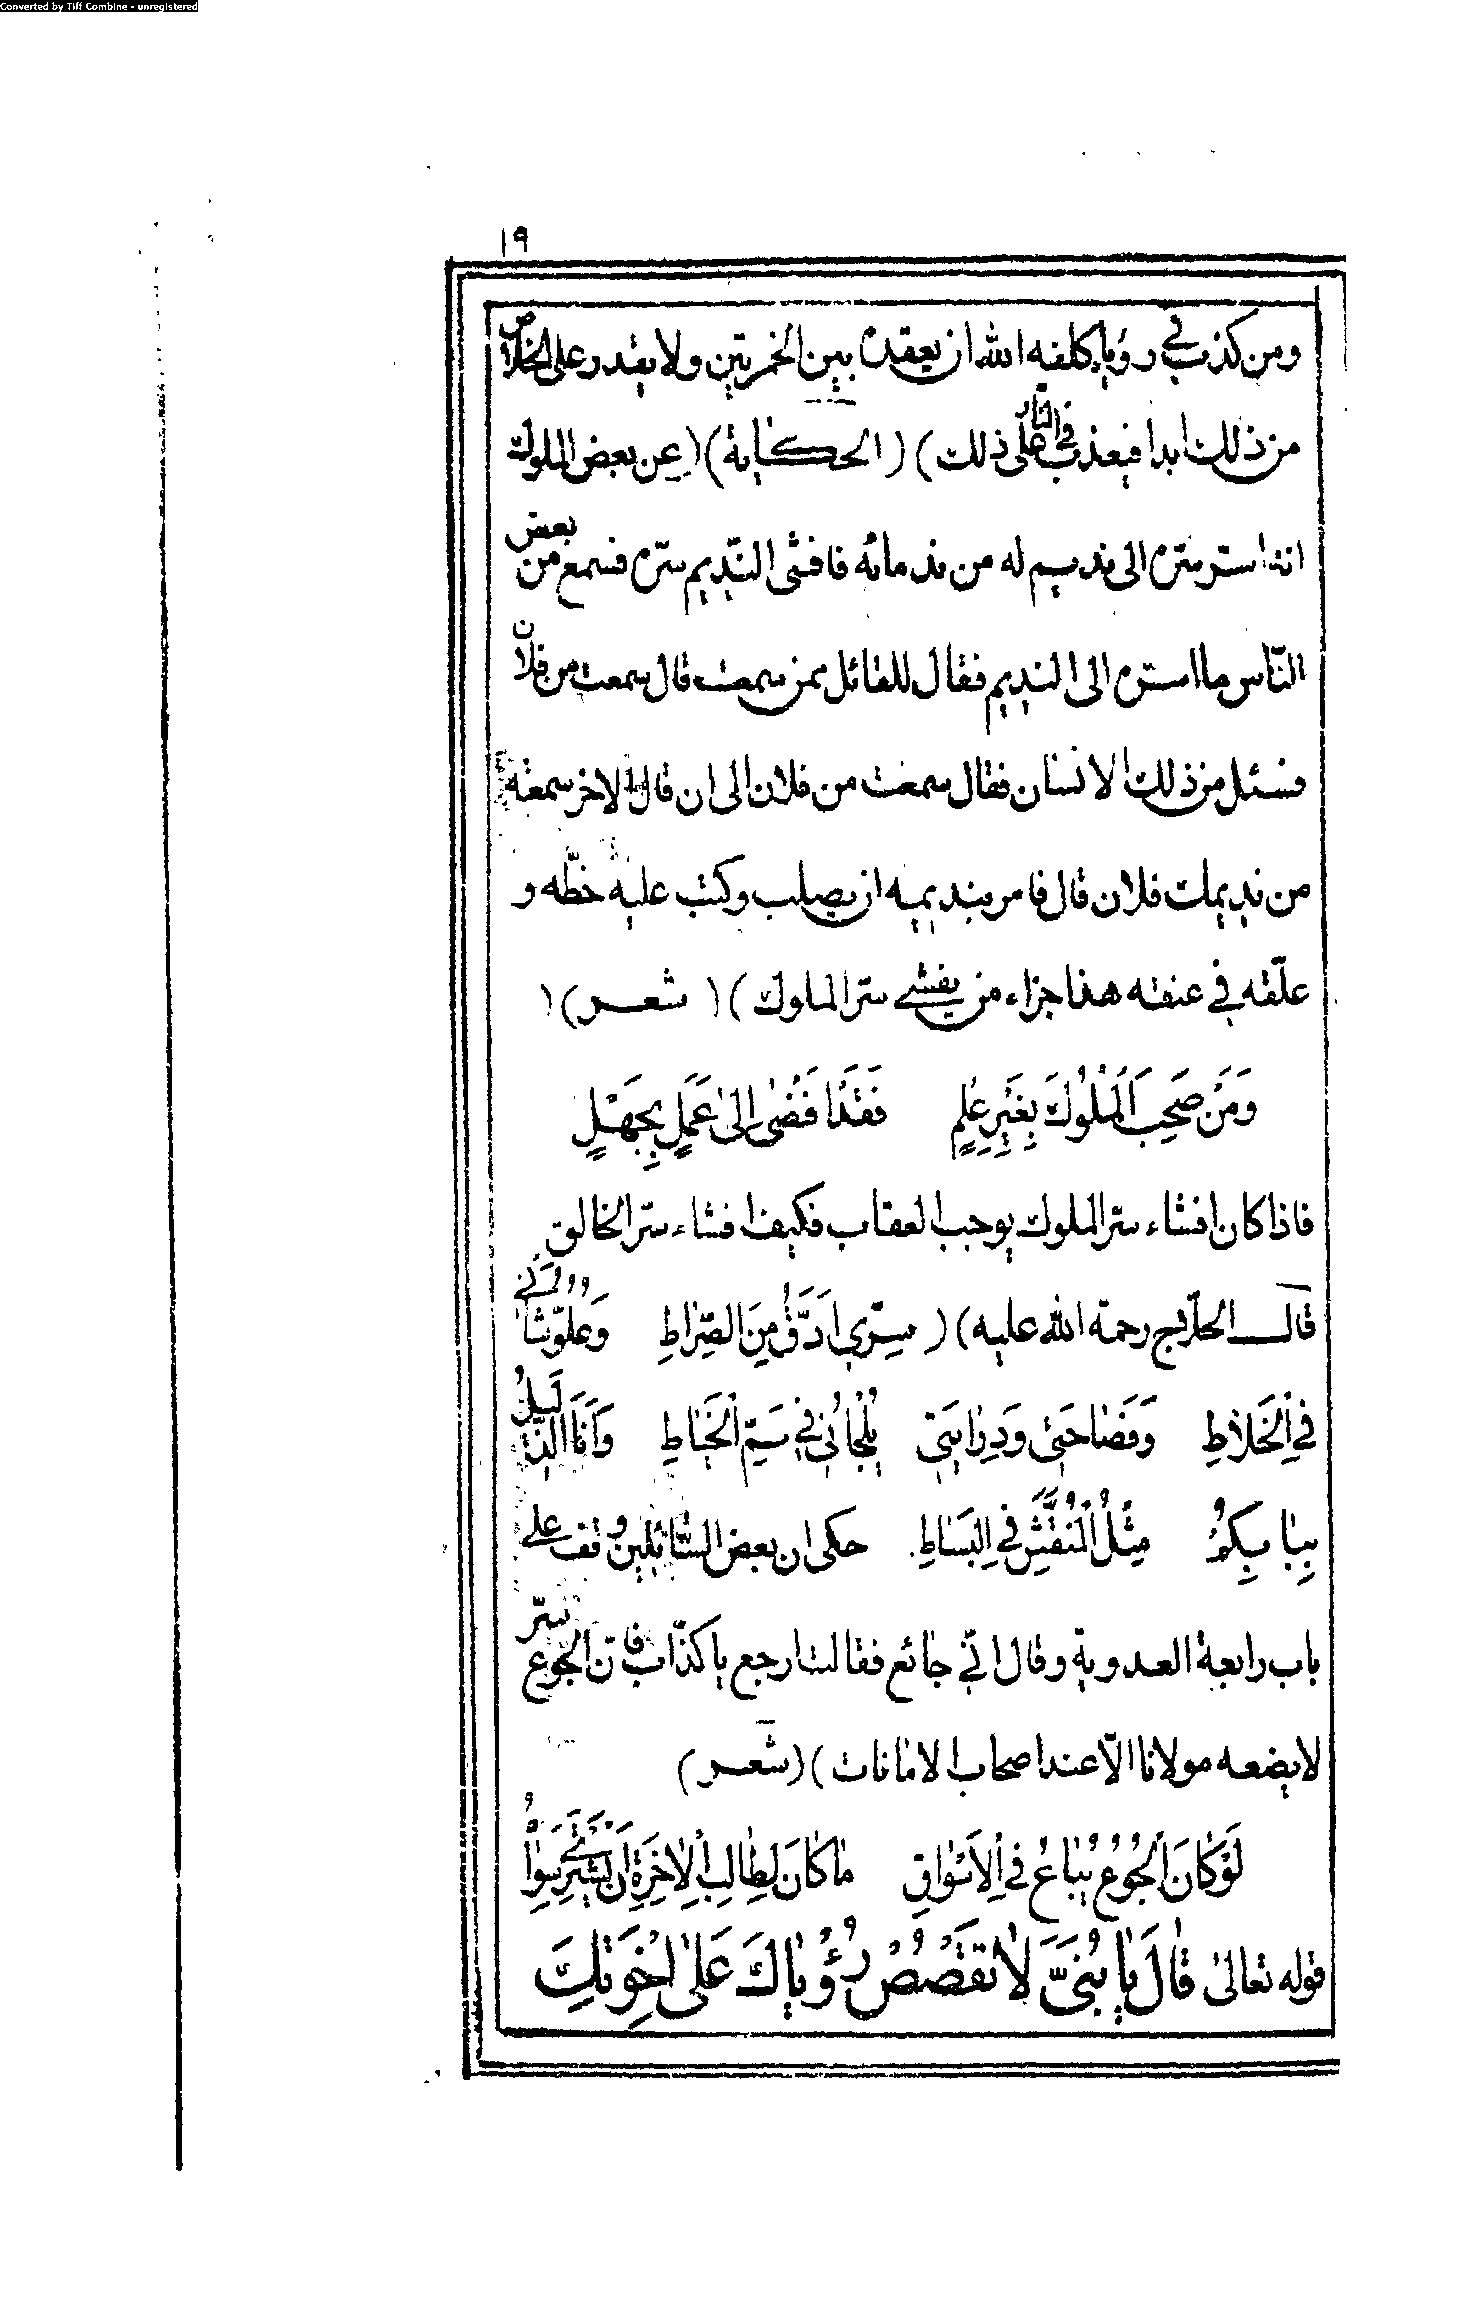 Converted by Tiff Combine - unregistered
١٩
ومن كذب في رؤياه كلفه الله ان يعقده بين الخمرتين ولا يقدر على الخلاص
من ذلك ابدا فيعذب في النار على ذلك) (الحكاية) (عن بعض الملوك
انه استر سرّه الى نديم له من ندمائه فافشى النّديم سرّه فسمع من بعض
النّاس ما استره الى النديم فقال للقائل ممن سمعت قال سمعت من فلان
فسئل من ذلك الانسان فقال سمعت من فلان الى ان قال الاخر سمعته
من نديمك فلان قال فامر بنديمه ان يصلب وكتب عليه خطّه و
علّقه في عنقه هذا جزاء من يفشي سرّ الملوك) (شعر) (
وَمَنْ صَحِبَ الْمُلُوكَ بِغَيْرِ عِلْمٍ فَقَدْ اَفْضٰى اِلٰى عَمَلٍ بِجَهْلٍ
فاذا كان افشاء سرّ الملوك يوجب العقاب فكيف افشاء سرّ الخالق
قال الحلّاج رحمة الله عليه) (سِرّي اَدَقُّ مِنَ الصِّرَاطِ وَعُلُوُّ شَأْنِي
فِي الْخِلَاطِ وَفَصَاحَتِي وَدِرَايَتِي يُلْجَأْنَ فِي سَمِّ الْخِيَاطِ وَاَنَا الذَّلِيلُ
بِبَابِكُمْ مِثْلُ الْمُنَقَّشِ فِي الْبَسَاطِ. حكى ان بعض السّائلين وقف على
باب رابعة العدوية وقال انّي جائع فقالت ارجع يا كذّاب فانّ الجوع سرّ
لا يضعه مولانا الّا عند اصحاب الامانات) (شعر)
لَوْ كَانَ الْجُوعُ يُبَاعُ فِي الْاَسْوَاقِ مَا كَانَ لِطَالِبِ الْاٰخِرَةِ اَنْ يَشْتَرِيَ سِوَاهُ
قوله تعالىٰ قَالَ يَا بُنَيَّ لَا تَقْصُصْ رُؤْيَاكَ عَلٰى اِخْوَتِكَ